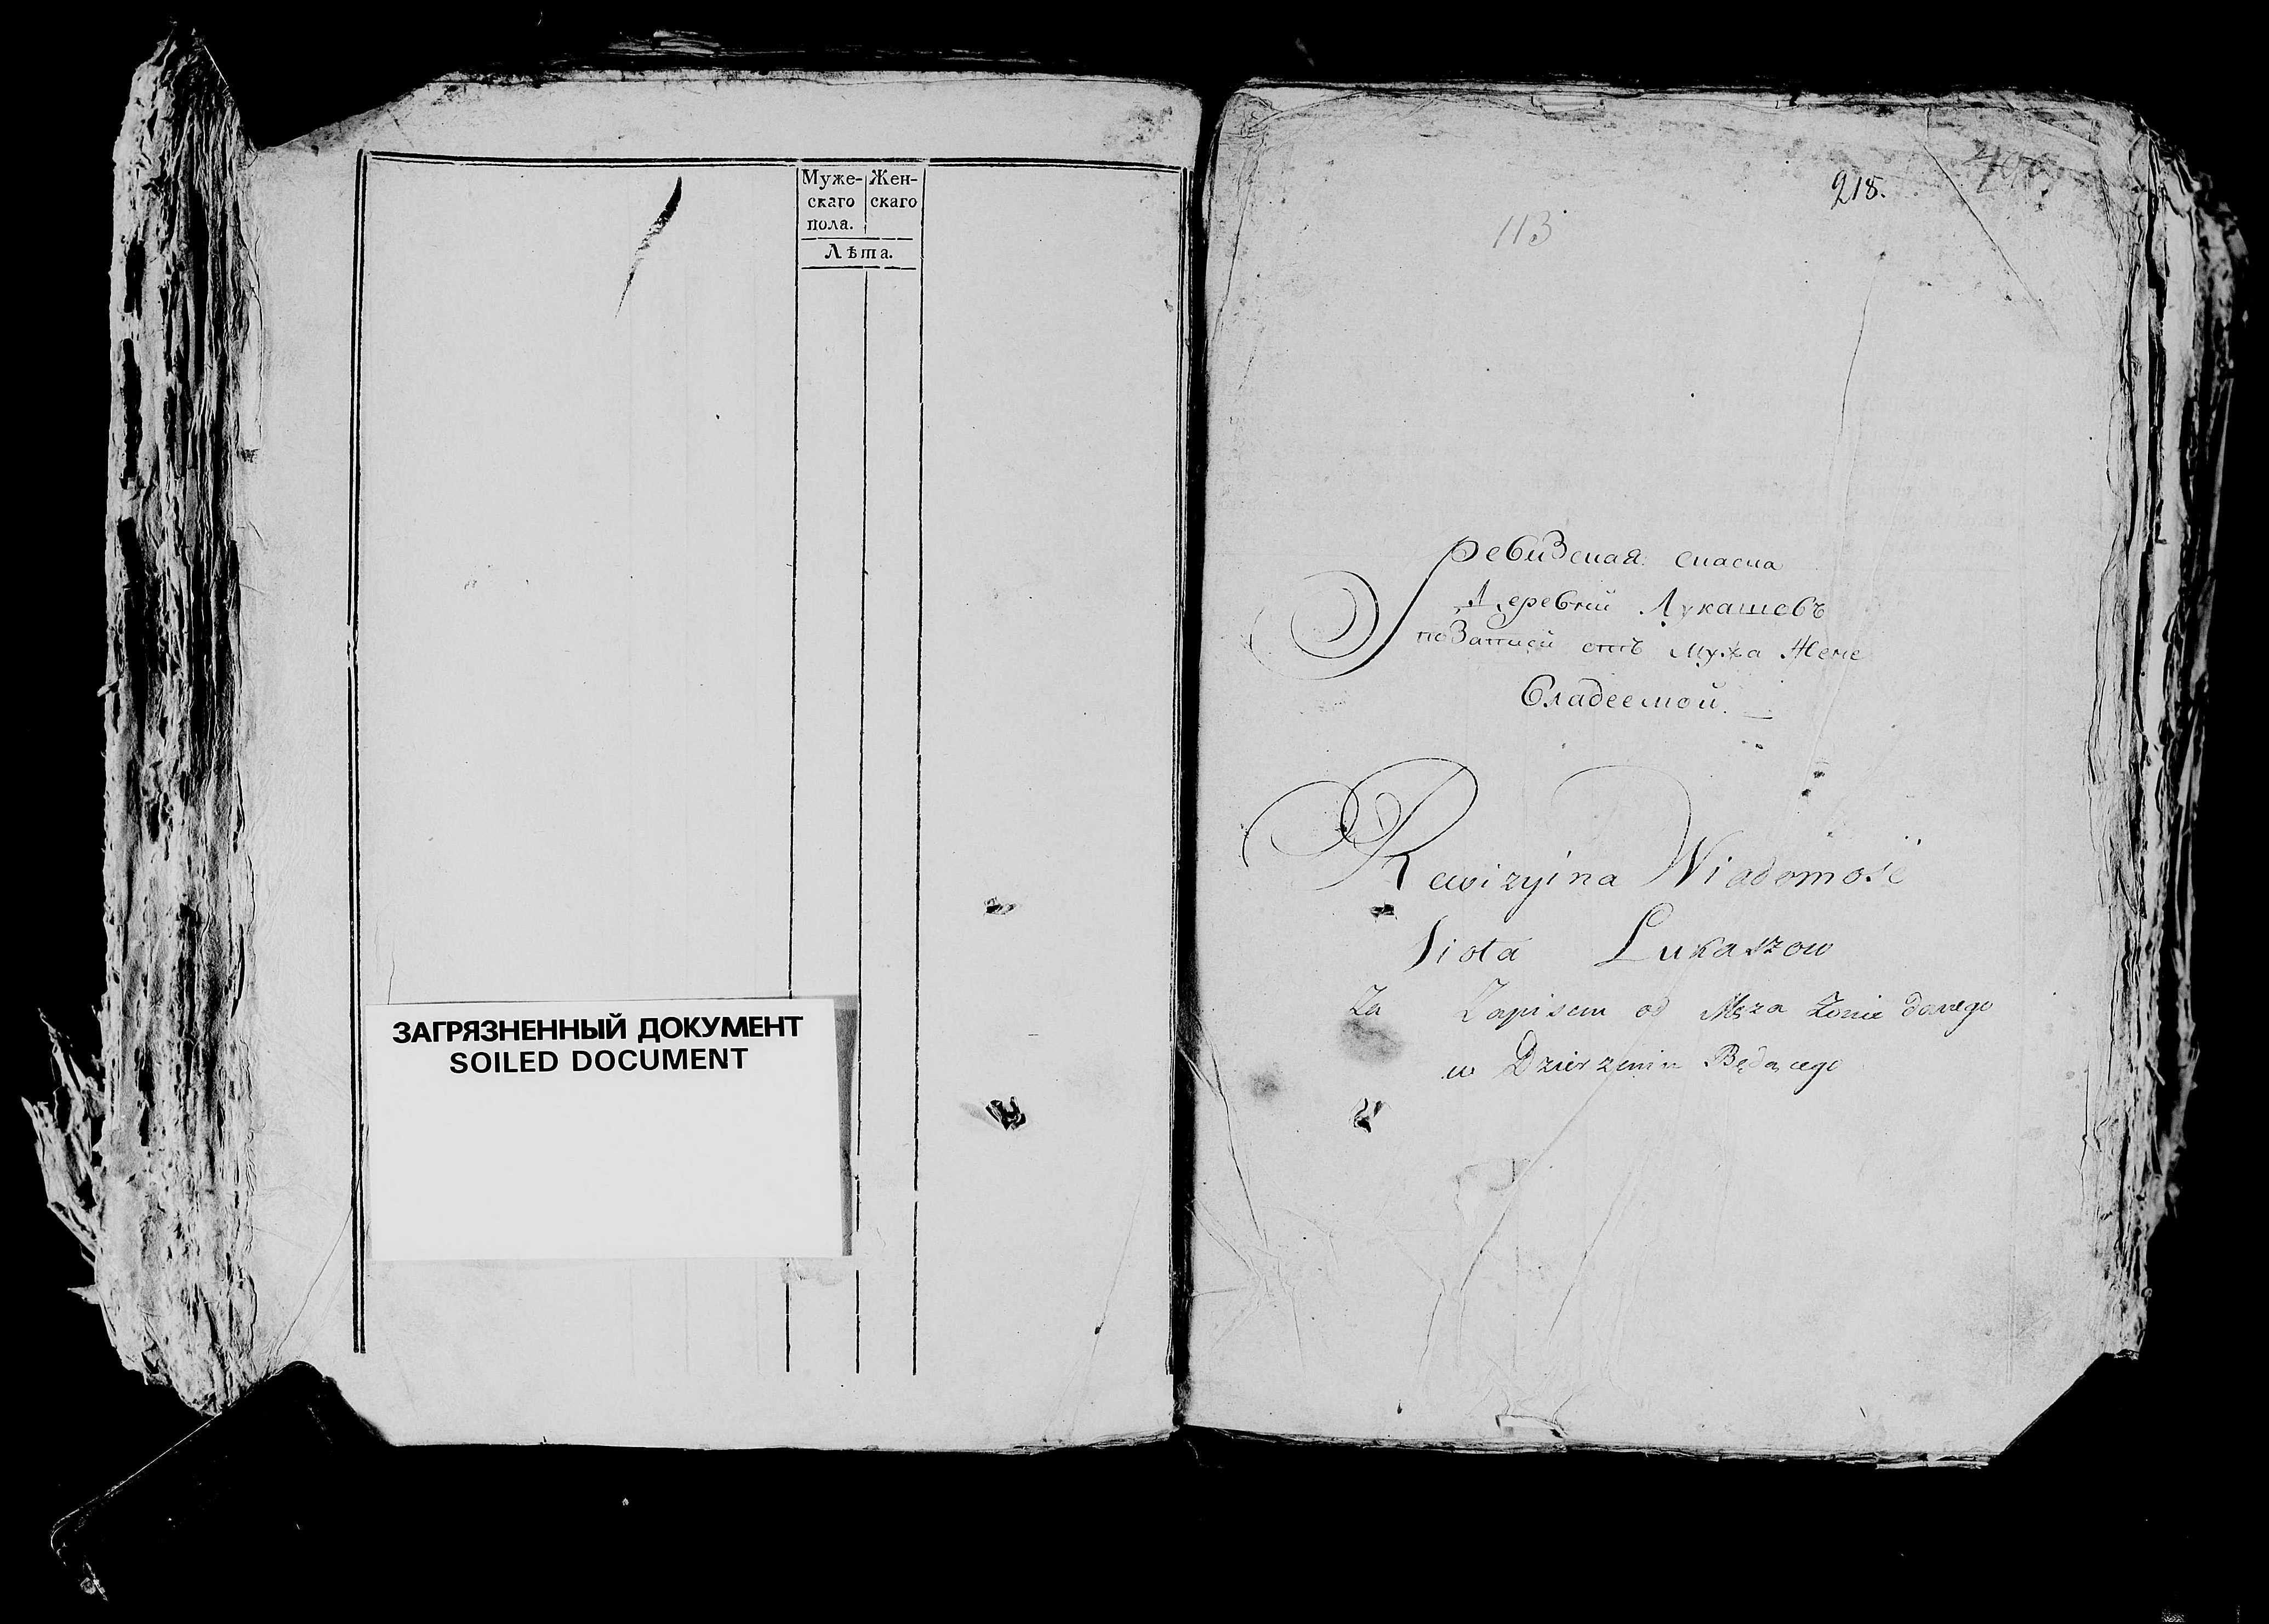 Муже- Жен-
скаго скаго
пола.
Лѣта.
ЗАГРЯЗНЕННЫЙ ДОКУМЕНТ
SOILED DOCUMENT
218.
113
ревизская скаска
Деревни Лукашовъ
по Записи отъ Мужа Жене
Владеемой.
Rewizyina Wiadomość
Siola Lukaszow
Za Zapisem od Męza Zonie danego
w Dzierzeniu Będącego